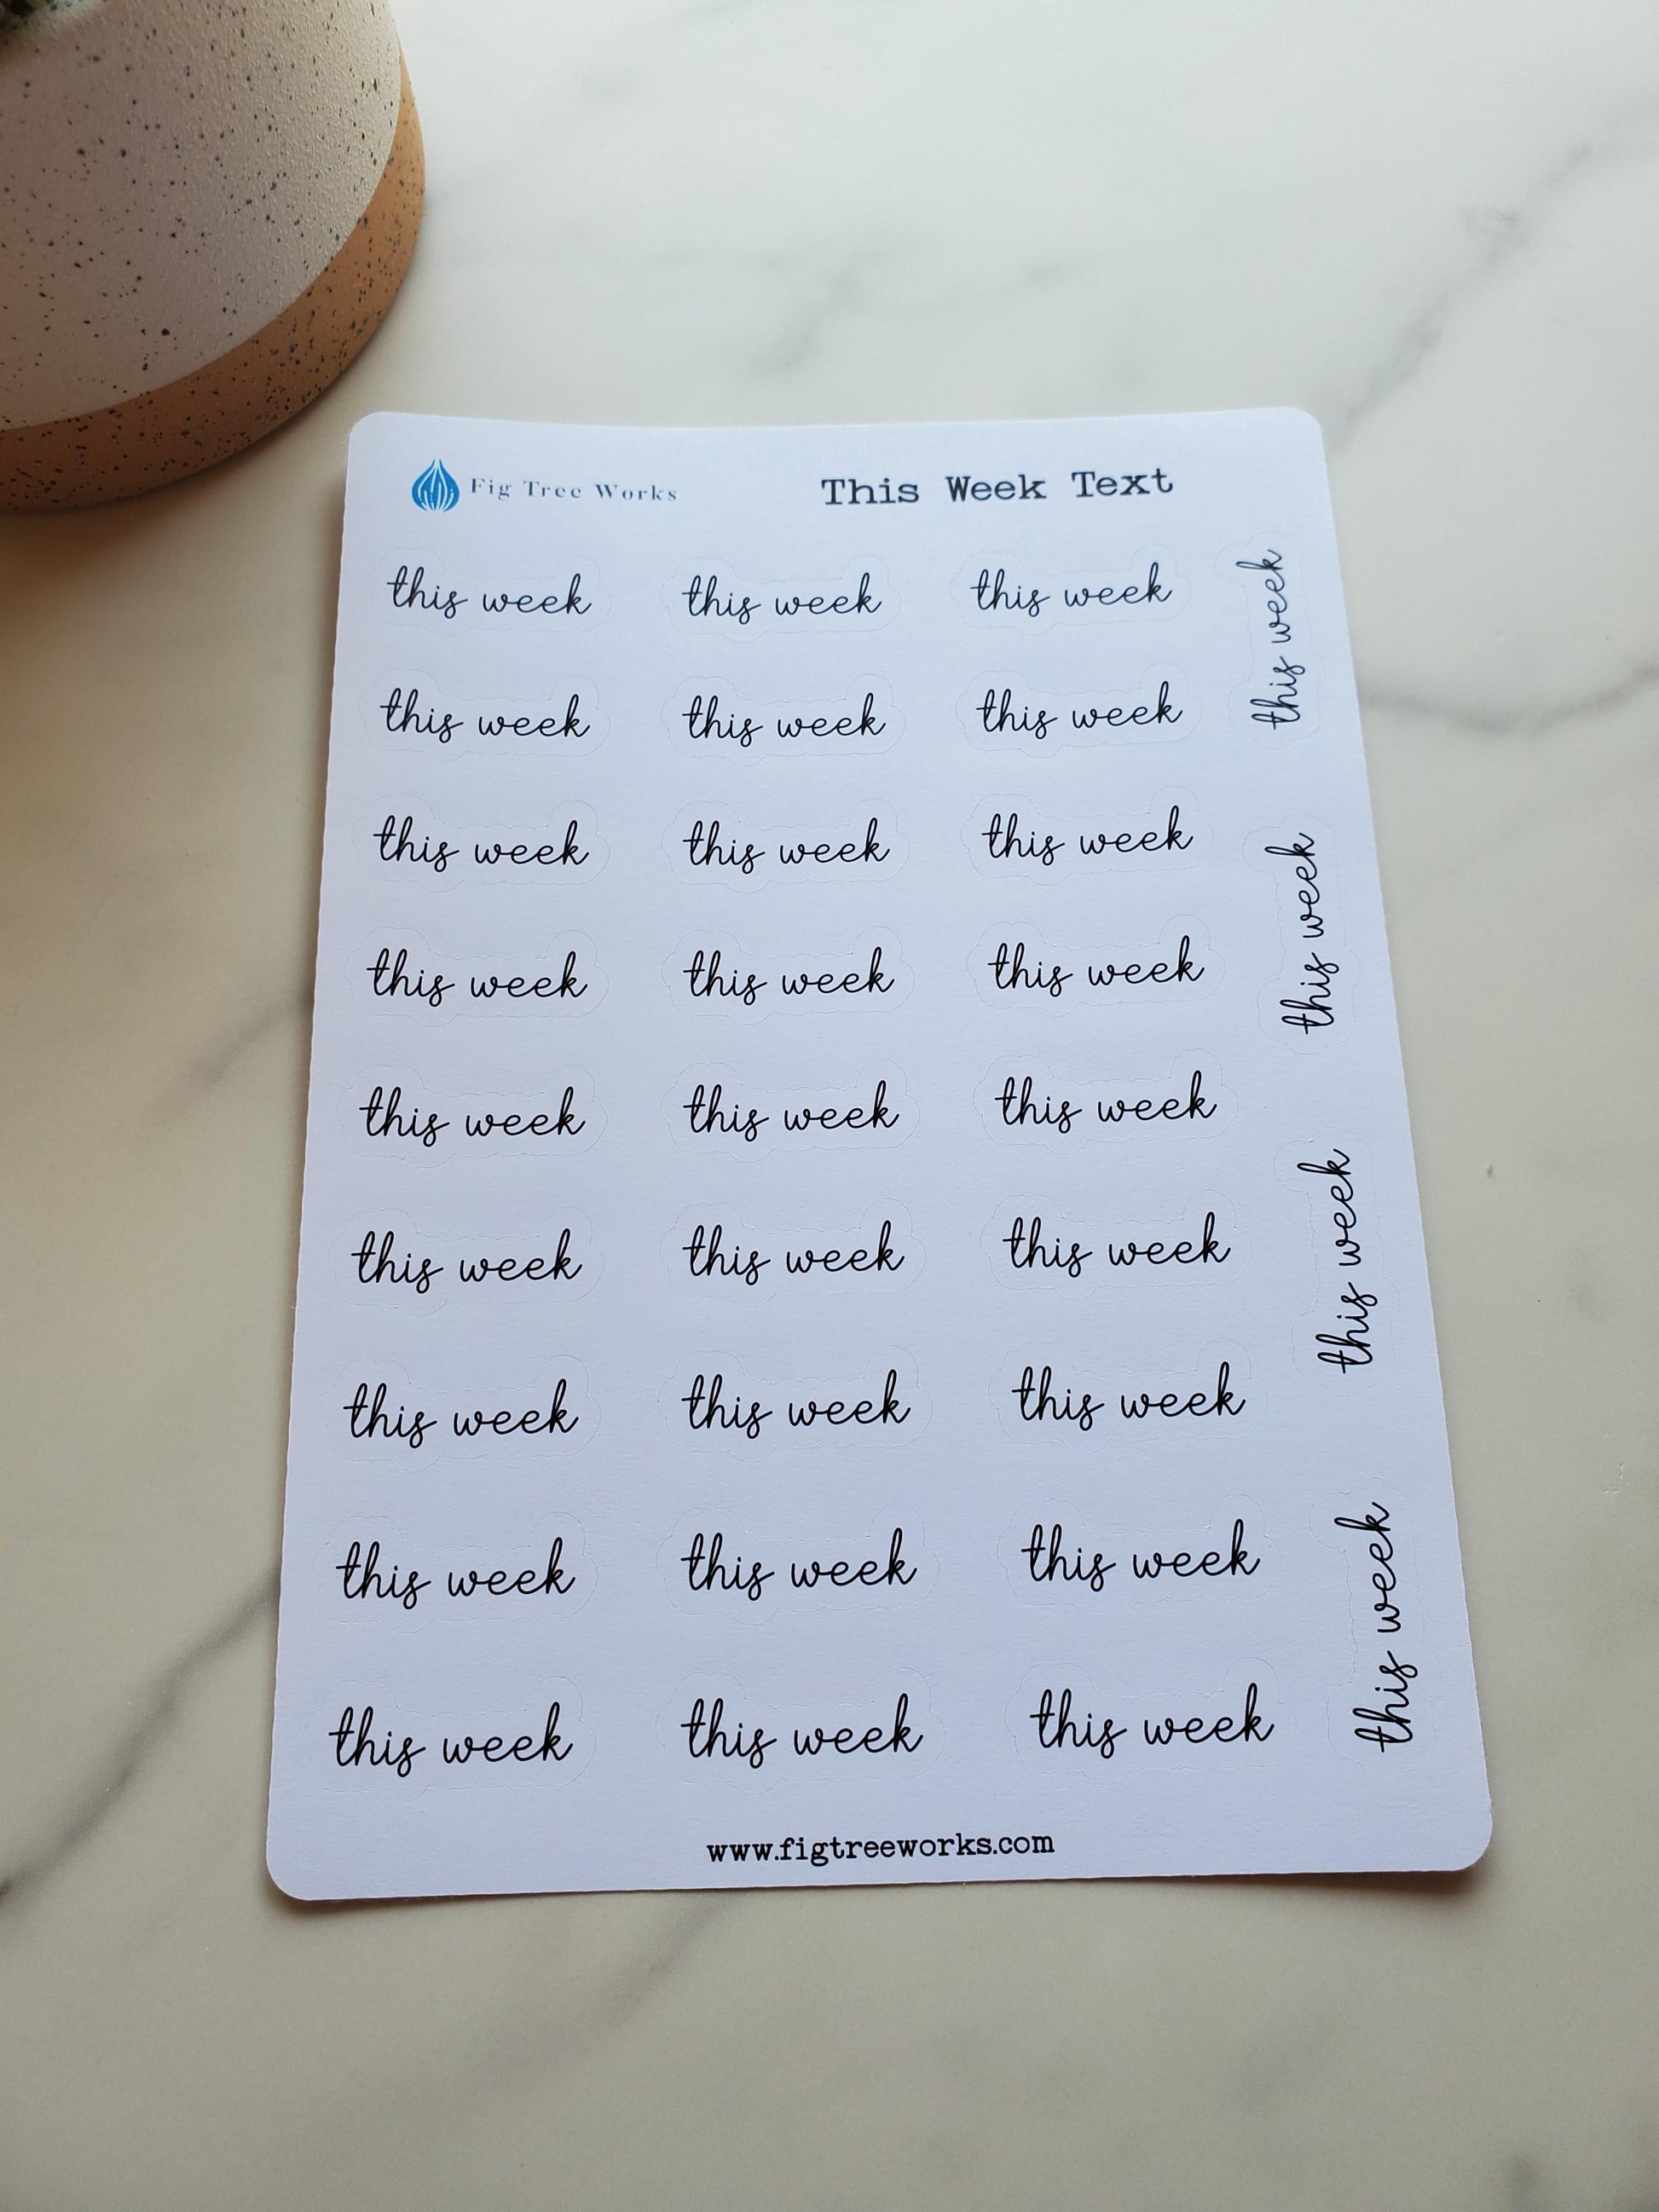 Fig Tree Works
This Week Text
this week this week this week
this week this week this week
this week this week this week
this week this week this week
this week this week this week
this week this week this week
this week this week this week
this week this week this week
this week this week this week
this week
this week
this week
this week
www.figtreeworks.com